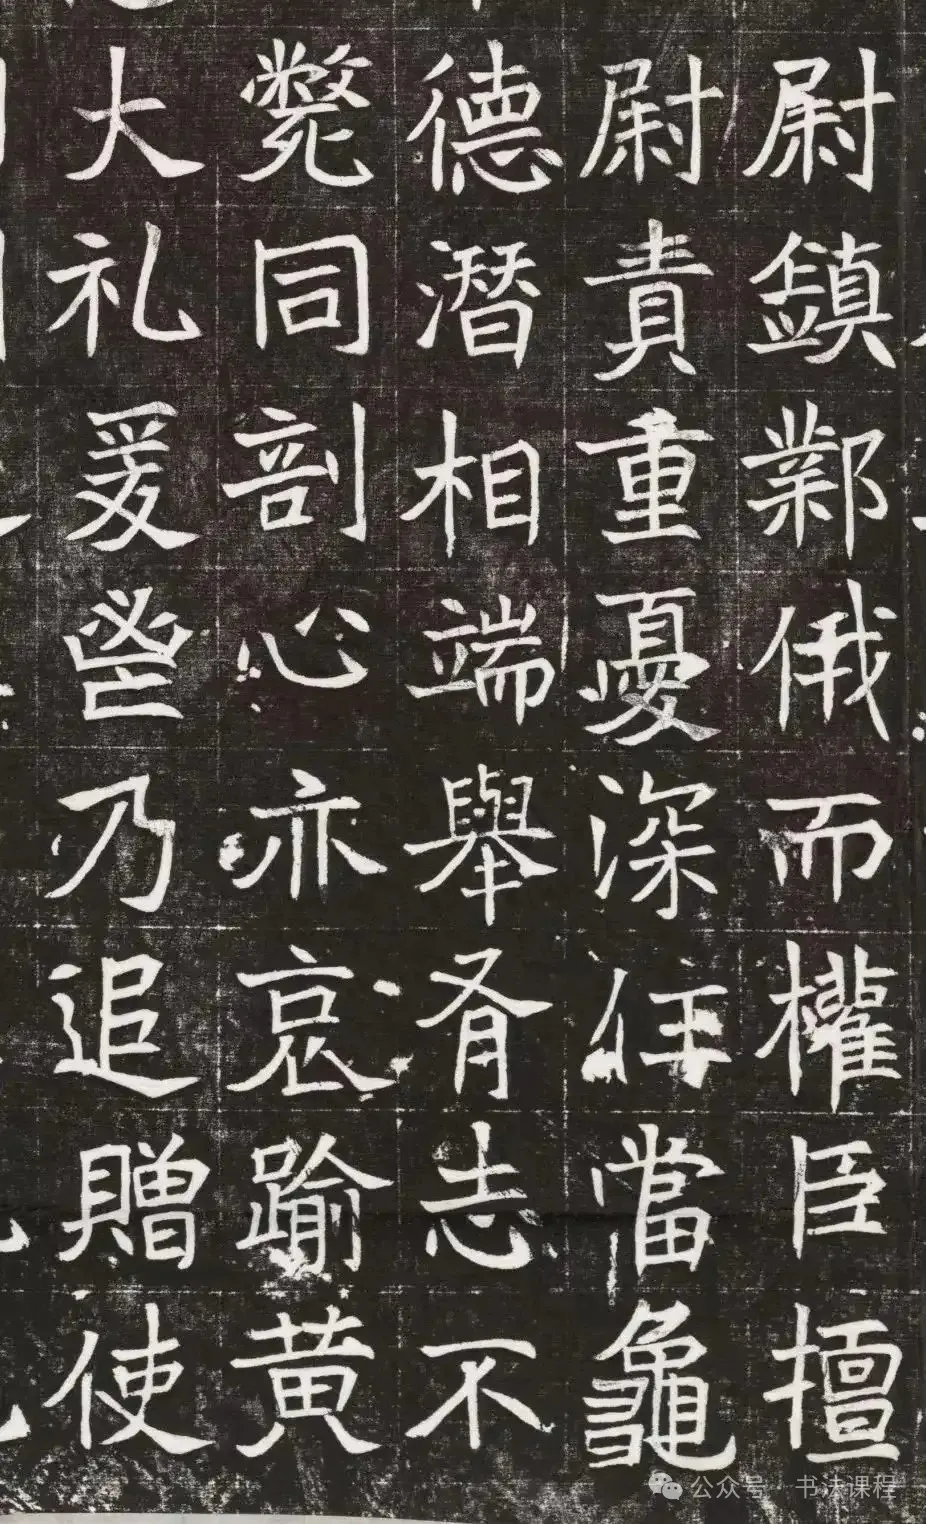 尉鎮鄴俄而權臣擅
尉責重憂深任當龜
德潛相端舉志不
斃同剖心亦哀踰黄
大礼爰乃追贈使
公众号 · 书法课程